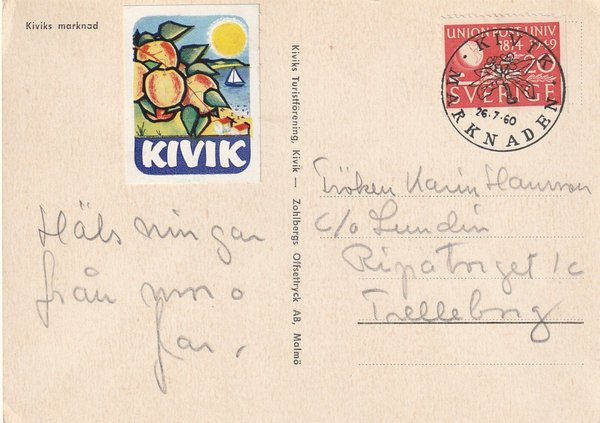 Kiviks marknad
KIVIK
Kiviks Turistförening, Kivik — Zohlbergs Offsettryck AB, Malmö
UNION POST. UNIV.
1874 1949
20
SVERIGE
KIVIK
MARKNADEN
26.7.60
Hälsningar
från mor o
far.
Fröken Karin Hansson
c/o Lundin
Ripatorget 1c
Trelleborg